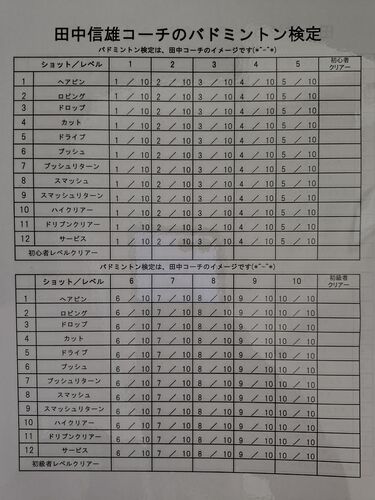 田中信雄コーチのバドミントン検定
バドミントン検定は、田中コーチのイメージです(*^-^*)
ショット／レベル 1 2 3 4 5 初心者クリアー
1 ヘアピン 1 ／ 10 2 ／ 10 3 ／ 10 4 ／ 10 5 ／ 10
2 ロビング 1 ／ 10 2 ／ 10 3 ／ 10 4 ／ 10 5 ／ 10
3 ドロップ 1 ／ 10 2 ／ 10 3 ／ 10 4 ／ 10 5 ／ 10
4 カット 1 ／ 10 2 ／ 10 3 ／ 10 4 ／ 10 5 ／ 10
5 ドライブ 1 ／ 10 2 ／ 10 3 ／ 10 4 ／ 10 5 ／ 10
6 プッシュ 1 ／ 10 2 ／ 10 3 ／ 10 4 ／ 10 5 ／ 10
7 プッシュリターン 1 ／ 10 2 ／ 10 3 ／ 10 4 ／ 10 5 ／ 10
8 スマッシュ 1 ／ 10 2 ／ 10 3 ／ 10 4 ／ 10 5 ／ 10
9 スマッシュリターン 1 ／ 10 2 ／ 10 3 ／ 10 4 ／ 10 5 ／ 10
10 ハイクリアー 1 ／ 10 2 ／ 10 3 ／ 10 4 ／ 10 5 ／ 10
11 ドリブンクリアー 1 ／ 10 2 ／ 10 3 ／ 10 4 ／ 10 5 ／ 10
12 サービス 1 ／ 10 2 ／ 10 3 ／ 10 4 ／ 10 5 ／ 10
初心者レベルクリアー
バドミントン検定は、田中コーチのイメージです(*^-^*)
ショット／レベル 6 7 8 9 10 初級者クリアー
1 ヘアピン 6 ／ 10 7 ／ 10 8 ／ 10 9 ／ 10 10 ／ 10
2 ロビング 6 ／ 10 7 ／ 10 8 ／ 10 9 ／ 10 10 ／ 10
3 ドロップ 6 ／ 10 7 ／ 10 8 ／ 10 9 ／ 10 10 ／ 10
4 カット 6 ／ 10 7 ／ 10 8 ／ 10 9 ／ 10 10 ／ 10
5 ドライブ 6 ／ 10 7 ／ 10 8 ／ 10 9 ／ 10 10 ／ 10
6 プッシュ 6 ／ 10 7 ／ 10 8 ／ 10 9 ／ 10 10 ／ 10
7 プッシュリターン 6 ／ 10 7 ／ 10 8 ／ 10 9 ／ 10 10 ／ 10
8 スマッシュ 6 ／ 10 7 ／ 10 8 ／ 10 9 ／ 10 10 ／ 10
9 スマッシュリターン 6 ／ 10 7 ／ 10 8 ／ 10 9 ／ 10 10 ／ 10
10 ハイクリアー 6 ／ 10 7 ／ 10 8 ／ 10 9 ／ 10 10 ／ 10
11 ドリブンクリアー 6 ／ 10 7 ／ 10 8 ／ 10 9 ／ 10 10 ／ 10
12 サービス 6 ／ 10 7 ／ 10 8 ／ 10 9 ／ 10 10 ／ 10
初級者レベルクリアー